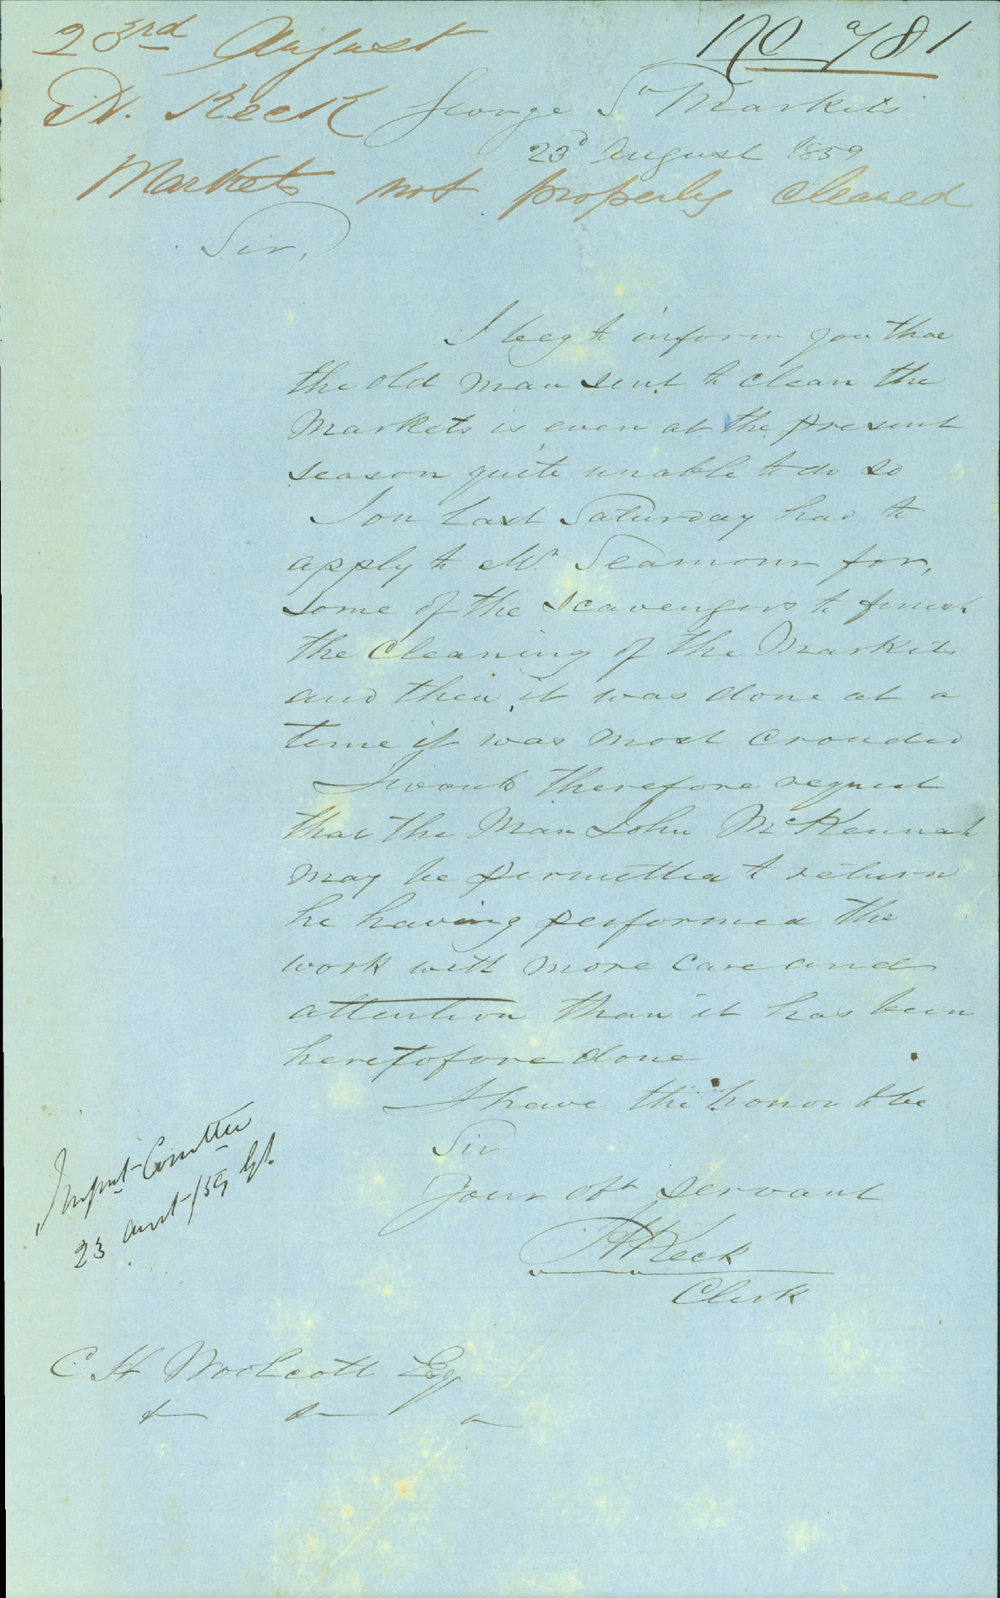 23rd August
No 781
H. Keck
George St Markets
23d August 1859
Markets not properly cleaned
Sir,
I beg to inform you that
the old man sent to clean the
Markets is even at the present
season quite unable to do so
I on Last Saturday had to
apply to Mr Seamour for,
some of the Scavengers to finish
the cleaning of the Markets
and then it was done at a
time it was most crouded
I would therefore request
that the Man John McKennah
may be permitted to return
he having performed the
work with more care and
attention than it has been
heretofore done
I have the honor to be
Sir
Your obt servant
H Keck
Clerk
Committee
23 /59
C H Woolcott Esq